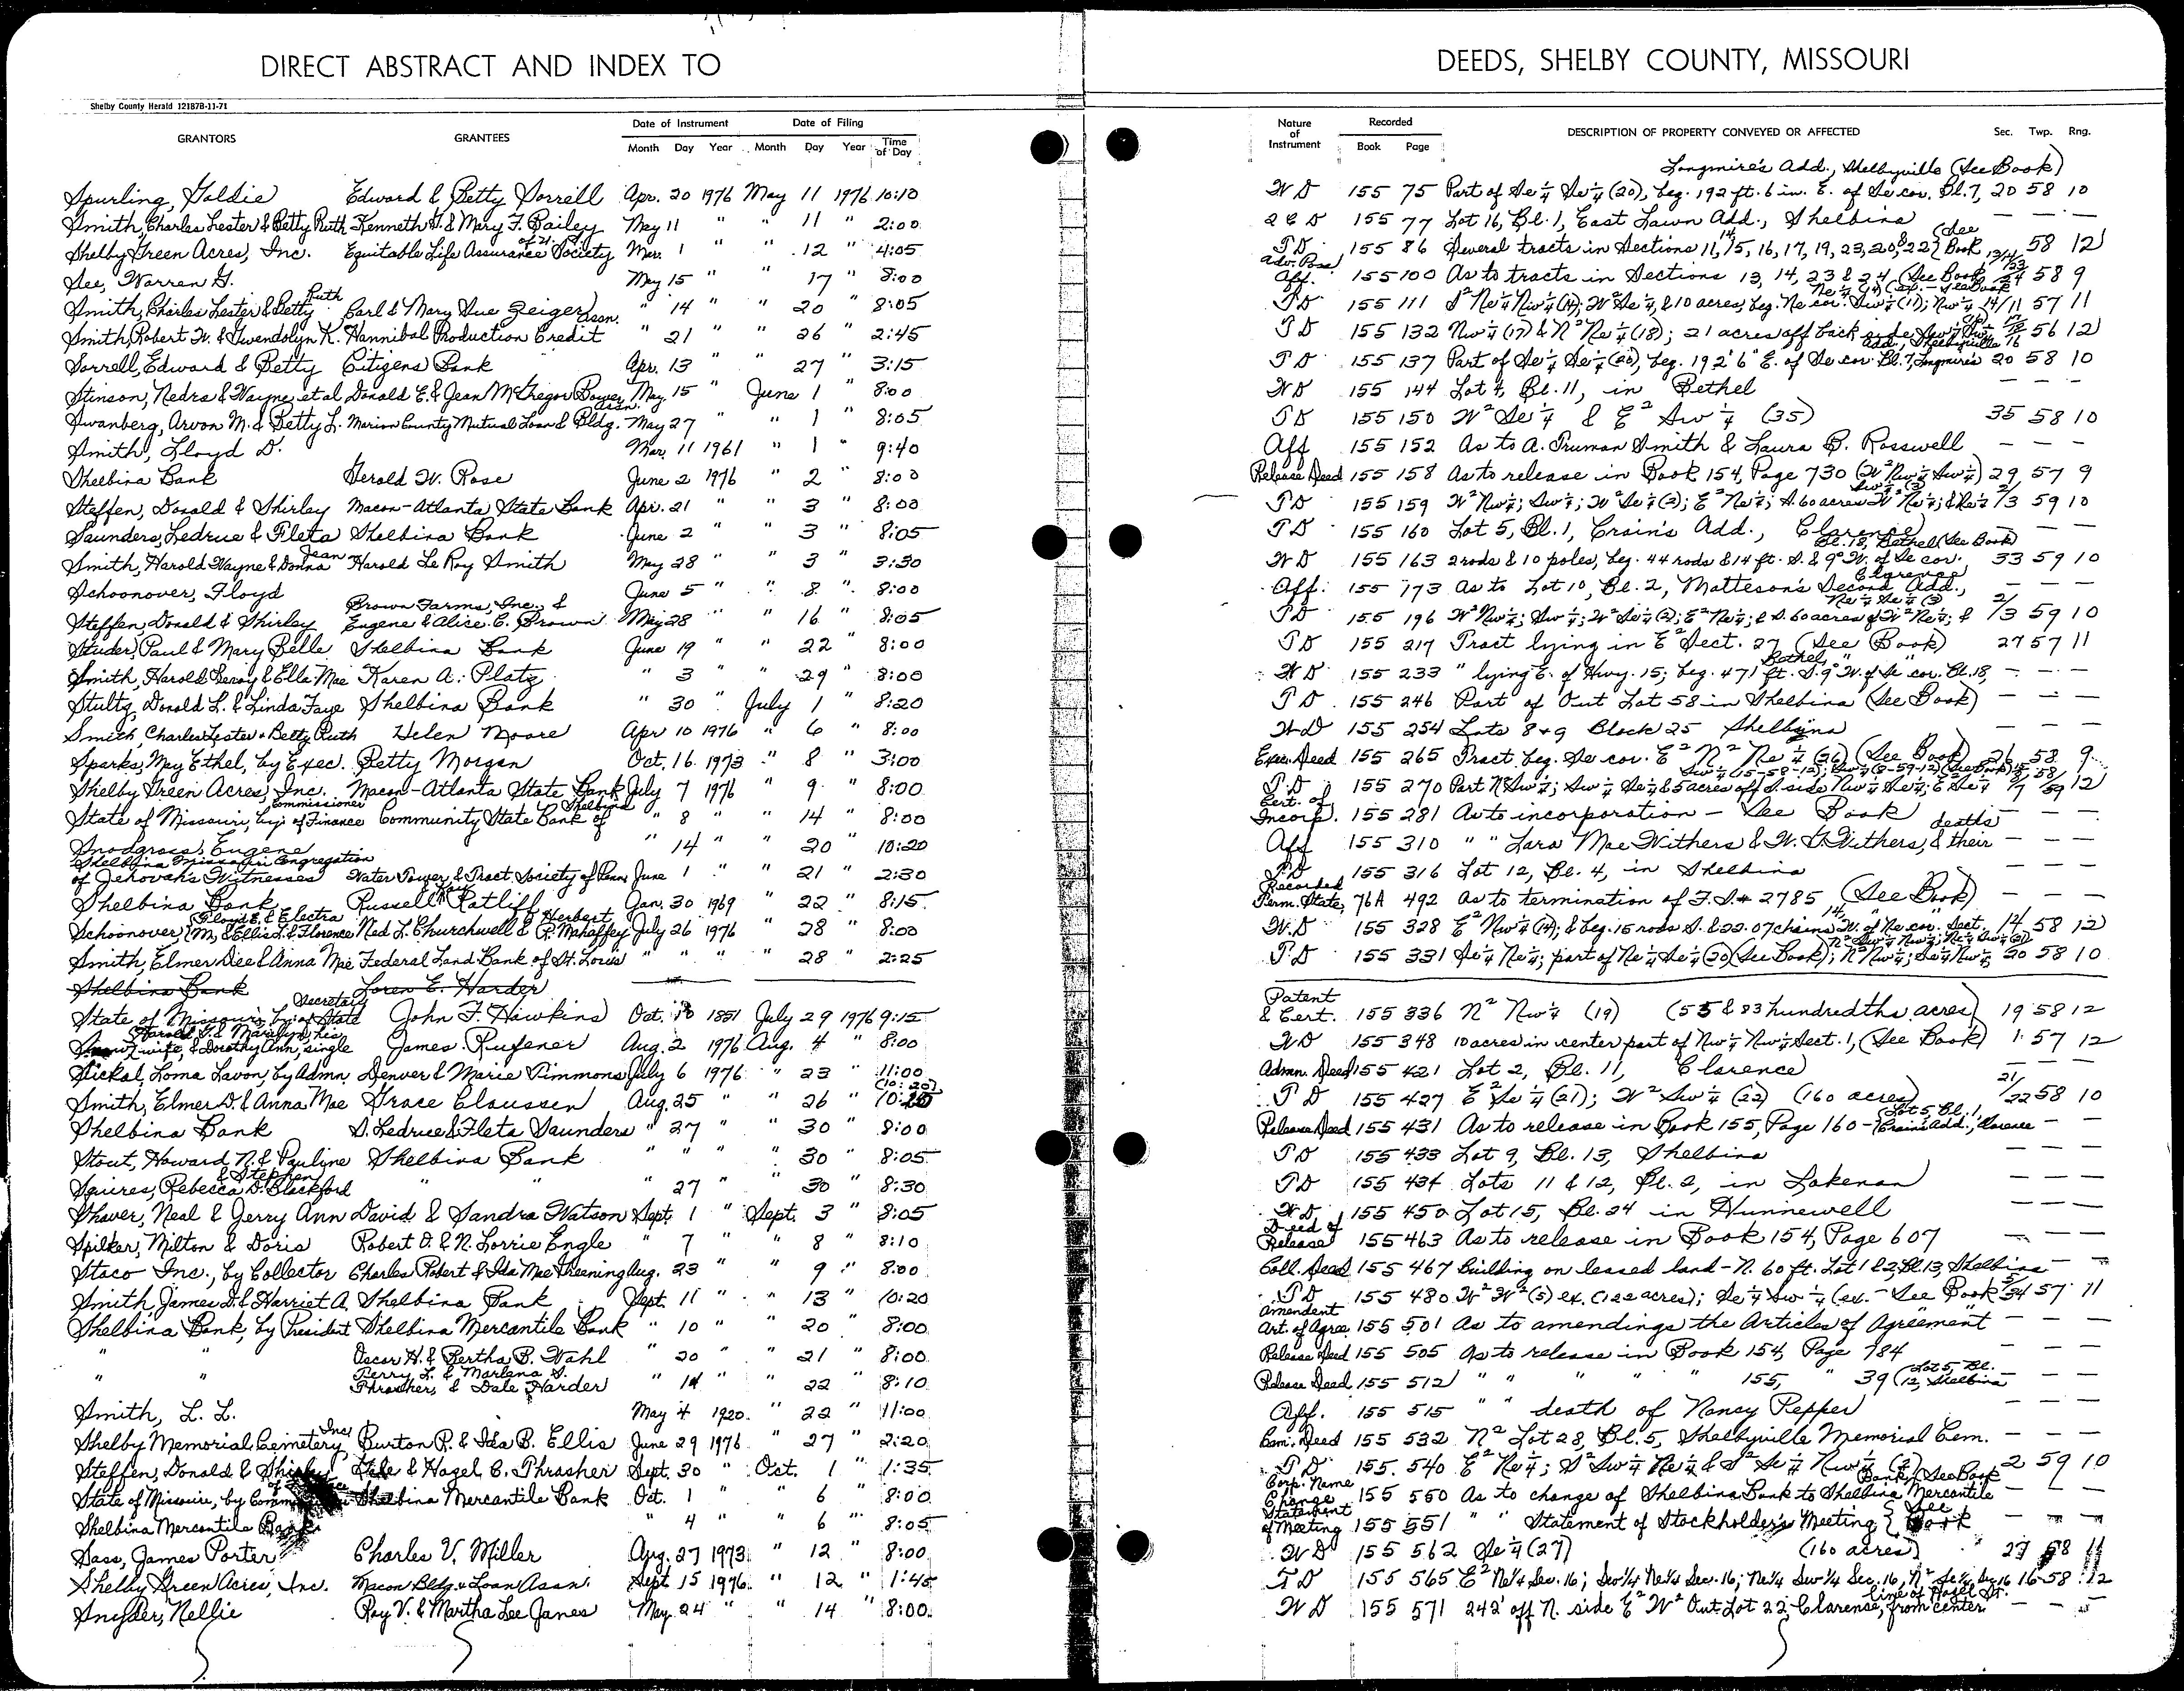 DIRECT ABSTRACT AND INDEX TO DEEDS, SHELBY COUNTY, MISSOURI
Shelby County Herald 12187B-11-71
GRANTORS GRANTEES Date of Instrument Month Day Year Date of Filing Month Day Year Time of Day Nature of Instrument Recorded Book Page DESCRIPTION OF PROPERTY CONVEYED OR AFFECTED Sec. Twp. Rng.
Longmire's Add., Shelbyville (See Book)
Spurling, Goldie Edward & Betty Sorrell Apr. 20 1976 May 11 1976 10:10 WD 155 75 Part of Se¼ Se¼ (20), beg. 192 ft. 6 in. E. of Se cor. Bl. 7, 20 58 10
Smith, Charles Lester & Betty Ruth Kenneth G. & Mary F. Bailey May 11 " " 11 " 2:00 QCD 155 77 Lot 16, Bl. 1, East Lawn Add., Shelbina — — —
Shelby Green Acres, Inc. Equitable Life Assurance Society of U.S. Mar. 1 " " 12 " 4:05 TD 155 86 Several tracts in Sections 11, 14, 15, 16, 17, 19, 23, 20, & 22 (See Book 58 12
See, Warren G. May 15 " " 17 " 8:00 Adv. Poss. Aff. 155 100 As to tracts in Sections 13, 14, 23 & 24 (See Book) 13/14/23/24 58 9
Smith, Charles Lester & Betty Ruth Carl & Mary Sue Zeiger " 14 " " 20 " 8:05 TD 155 111 S² Ne¼ Nw¼ (14); W² Se¼, & 10 acres, beg. Ne cor. Sw¼ (11); Nw¼ Ne¼ (14) (ex. - See Book 14/11 57 11
Smith, Robert W. & Gwendolyn K. Hannibal Production Credit Assn. " 21 " " 26 " 2:45 TD 155 132 Nw¼ (17) & N² Ne¼ (18); 21 acres off back side 56 12
Sorrell, Edward & Betty Citizens Bank Apr. 13 " " 27 " 3:15 TD 155 137 Part of Se¼ Se¼ (20), beg. 192' 6" E. of Se cor. Bl. 7, Longmire's Add., Shelbyville 20 58 10
Stinson, Nedra & Wayne et al Donald E. & Jean McGregor Bower May 15 " June 1 " 8:00 WD 155 144 Lot 4, Bl. 11, in Bethel — — —
Swanberg, Arvon M. & Betty L. Marion County Mutual Loan & Bldg. Assn. May 27 " " 1 " 8:05 TD 155 150 W² Se¼ & E² Sw¼ (35) 35 58 10
Smith, Lloyd D. Mar. 11 1961 " 1 " 9:40 Aff 155 152 As to A. Truman Smith & Laura B. Rosswell — — —
Shelbina Bank Gerald W. Rose June 2 1976 " 2 " 8:00 Release Deed 155 158 As to release in Book 154, Page 730 (W² Nw¼ Sw¼) 29 57 9
Steffen, Donald & Shirley Macon-Atlanta State Bank Apr. 21 " " 3 " 8:00 TD 155 159 W² Nw¼; Sw¼; W² Se¼ (2); E² Ne¼; S. 60 acres W² Ne¼; & Ne¼ Se¼ (3) 2/3 59 10
Saunders, Ledrue & Fleta Shelbina Bank June 2 " " 3 " 8:05 TD 155 160 Lot 5, Bl. 1, Crain's Add., Clarence — — —
Smith, Harold Wayne & Donna Jean Harold Le Roy Smith May 28 " " 3 " 3:30 WD 155 163 2 rods & 10 poles, beg. 44 rods & 14 ft. S. & 9° W. of Se cor. Bl. 18, Bethel (See Book) 33 59 10
Schoonover, Floyd June 5 " " 8 " 8:00 Aff. 155 173 As to Lot 10, Bl. 2, Matteson's Second Add., Clarence — — —
Steffen, Donald & Shirley Brown Farms, Inc., & Eugene & Alice C. Brown May 28 " " 16 " 8:05 TD 155 196 W² Nw¼; Sw¼; W² Se¼ (2); E² Ne¼; & S. 60 acres of W² Ne¼; & Ne¼ Se¼ (3) 2/3 59 10
Studer, Paul & Mary Belle Shelbina Bank June 19 " " 22 " 8:00 TD 155 217 Tract lying in E² Sect. 27 (See Book) 27 57 11
Smith, Harold Leroy & Ella Mae Karen A. Platz " 3 " " 29 " 8:00 WD 155 233 " lying E. of Hwy. 15; beg. 471 ft. S. 9° W. of Se cor. Bl. 18, Bethel — — —
Stultz, Donald L. & Linda Faye Shelbina Bank " 30 " July 1 " 8:20 TD 155 246 Part of Out Lot 58 in Shelbina (See Book) — — —
Smith, Charles Lester & Betty Ruth Helen Moore Apr 10 1976 " 6 " 8:00 WD 155 254 Lots 8 & 9 Block 25 Shelbina — — —
Sparks, May Ethel, by Exec. Betty Morgan Oct. 16 1973 " 8 " 3:00 Exec. Deed 155 265 Tract beg. Se cor. E² N² Ne¼ (26) (See Book) 26 58 9
Shelby Green Acres, Inc. Macon-Atlanta State Bank July 7 1976 " 9 " 8:00 TD 155 270 Part N² Sw¼; Sw¼ Se¼ & 5 acres off S. side Nw¼ Se¼; E² Se¼ 12
State of Missouri, by Commissioner of Finance Community State Bank of Shelbina " 8 " " 14 " 8:00 Cert. of Incorp. 155 281 As to incorporation - See Book — — —
Snodgrass, Eugene " 14 " " 20 " 10:20 Aff 155 310 " " Lara Mae Withers & W. T. Withers, & their deaths — — —
Shelbina Missouri Congregation of Jehovah's Witnesses Water Tower, & Tract Society of Penn. June 1 " " 21 " 2:30 TD 155 316 Lot 12, Bl. 4, in Shelbina — — —
Shelbina Bank Russell Kay Ratliff Jan. 30 1969 " 22 " 8:15 Recorded Perm. State, 76A 492 As to termination of F.S. # 2785 (See Book) — — —
Schoonover, (Floyd E. & Electra M., & Ellis L. & Florence Ned L. Churchwell & Herbert P. Mahaffey July 26 1976 " 28 " 8:00 WD 155 328 E² Nw¼ (14); & beg. 15 rods S. & 22.07 chains W. of Ne cor. Sect. 14, 14 58 12
Smith, Elmer Dee & Anna Mae Federal Land Bank of St. Louis " " " " 28 " 2:25 TD 155 331 Se¼ Ne¼; part of Ne¼ Se¼ (20) (See Book); N² Nw¼; Se¼ Nw¼; N² Sw¼ Nw¼; Ne¼ Sw¼ (21) 20 58 10
Shelbina Bank Loren E. Harder
State of Missouri, by Secretary of State John F. Hawkins Oct. 18 1851 July 29 1976 9:15 Patent & Cert. 155 336 N² Nw¼ (19) (55 & 83 hundredths acres) 19 58 12
Snow, Harold G. & Marilyn, his wife, & Dorothy Ann, single James Rufener Aug. 2 1976 Aug. 4 " 8:00 WD 155 348 10 acres in center part of Nw¼ Nw¼ Sect. 1, (See Book) 1 57 12
Sickal, Loma Lavon, by Admn. Denver & Marie Timmons July 6 1976 " 23 " 11:00 Admn. Deed 155 421 Lot 2, Bl. 11, Clarence — — —
Smith, Elmer D. & Anna Mae Grace Claussen Aug. 25 " " 26 " (10:20) TD 155 427 E² Se¼ (21); W² Sw¼ (22) (160 acres) 21/22 58 10
Shelbina Bank S. Ledrue & Fleta Saunders " 27 " " 30 " 8:00 Release Deed 155 431 As to release in Book 155, Page 160 - (Lot 5, Bl. 1, Crain's Add., Clarence — — —
Stout, Howard N. & Pauline Shelbina Bank " " " " 30 " 8:05 TD 155 433 Lot 9, Bl. 13, Shelbina — — —
Squires, Rebecca D. & Stephen Blackford " " " 27 " " 30 " 8:30 TD 155 434 Lots 11 & 12, Bl. 2, in Lakenan — — —
Shaver, Neal & Jerry Ann David & Sandra Watson Sept. 1 " Sept. 3 " 8:05 WD 155 450 Lot 15, Bl. 24 in Hunnewell — — —
Spilker, Milton & Doris Robert D. & N. Lorrie Engle " 7 " " 8 " 8:10 Deed of Release 155 463 As to release in Book 154, Page 607 — — —
Staco Inc., by Collector Charles Robert & Ida Mae Greening Aug. 23 " " 9 " 8:00 Coll. Deed 155 467 Building on leased land - N. 60 ft. Lot 1 & 2, Bl. 13, Shelbina —
Smith, James D. & Harriet A. Shelbina Bank Sept. 11 " " 13 " 10:20 TD 155 480 W² W² (5) ex. (122 acres); Se¼ Sw¼ (ex. - See Book 5/34 57 11
Shelbina Bank, by President Shelbina Mercantile Bank " 10 " " 20 " 8:00 Amendent Art. of Agree. 155 501 As to amendings the Articles of Agreement — — —
" " Oscar H. & Bertha B. Wahl " 20 " " 21 " 8:00 Release Deed 155 505 As to release in Book 154, Page 784 — — —
" " Perry L. & Marlena S. Thrasher, & Dale Harder " 14 " " 22 " 8:10 Release Deed 155 512 " " " " " 155, " 39 (Lot 5, Bl. 12, Shelbina — — —
Smith, L. L. May 4 1920 " 22 " 11:00 Aff. 155 515 " " death of Nancy Pepper — — —
Shelby Memorial Cemetery, Inc. Burton R. & Ida B. Ellis June 29 1976 " 27 " 2:20 Cem. Deed 155 532 N² Lot 28, Bl. 5, Shelbyville Memorial Cem. — — —
Steffen, Donald & Shirley & Hazel C. Thrasher Sept. 30 " Oct. 1 " 1:35 TD 155 540 E² Ne¼; S² Sw¼ Ne¼ & S² Se¼ Nw¼ (2) 2 59 10
State of Missouri, by Shelbina Mercantile Bank Oct. 1 " " 6 " 8:00 Corp. Name Change 155 550 As to change of Shelbina Bank to Shelbina Mercantile Bank (See Book — — —
Shelbina Mercantile Bank " 4 " " 6 " 8:05 Statement of Meeting 155 551 " " Statement of Stockholder's Meeting { See Book — — —
Sass, James Porter Charles V. Miller Aug. 27 1973 " 12 " 8:00 WD 155 562 Se¼ (27) (160 acres) 27 58 11
Shelby Green Acres, Inc. Macon Bldg. & Loan Assn. Sept 15 1976 " 12 " 1:45 TD 155 565 E² Ne¼ Sec. 16; Sw¼ Ne¼ Sec. 16; Ne¼ Sw¼ Sec. 16, N² Se¼ Sec 16 16-58 12
Snyder, Nellie Roy V. & Martha Lee Janes May 24 " " 14 " 8:00 WD 155 571 242' off N. side E² W² Out Lot 22, Clarence, from center line of Hazel St. — — —